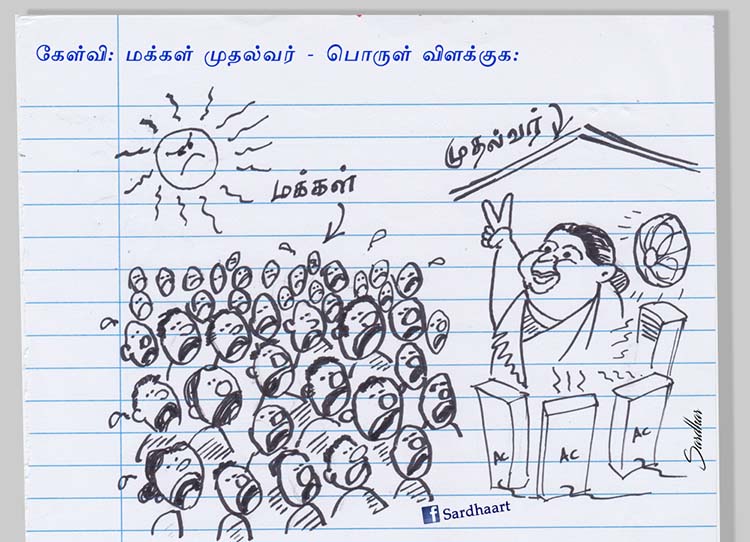 கேள்வி: மக்கள் முதல்வர் - பொருள் விளக்குக:
மக்கள்
முதல்வர்
AC
AC
AC
Sardhas
f Sardhaart